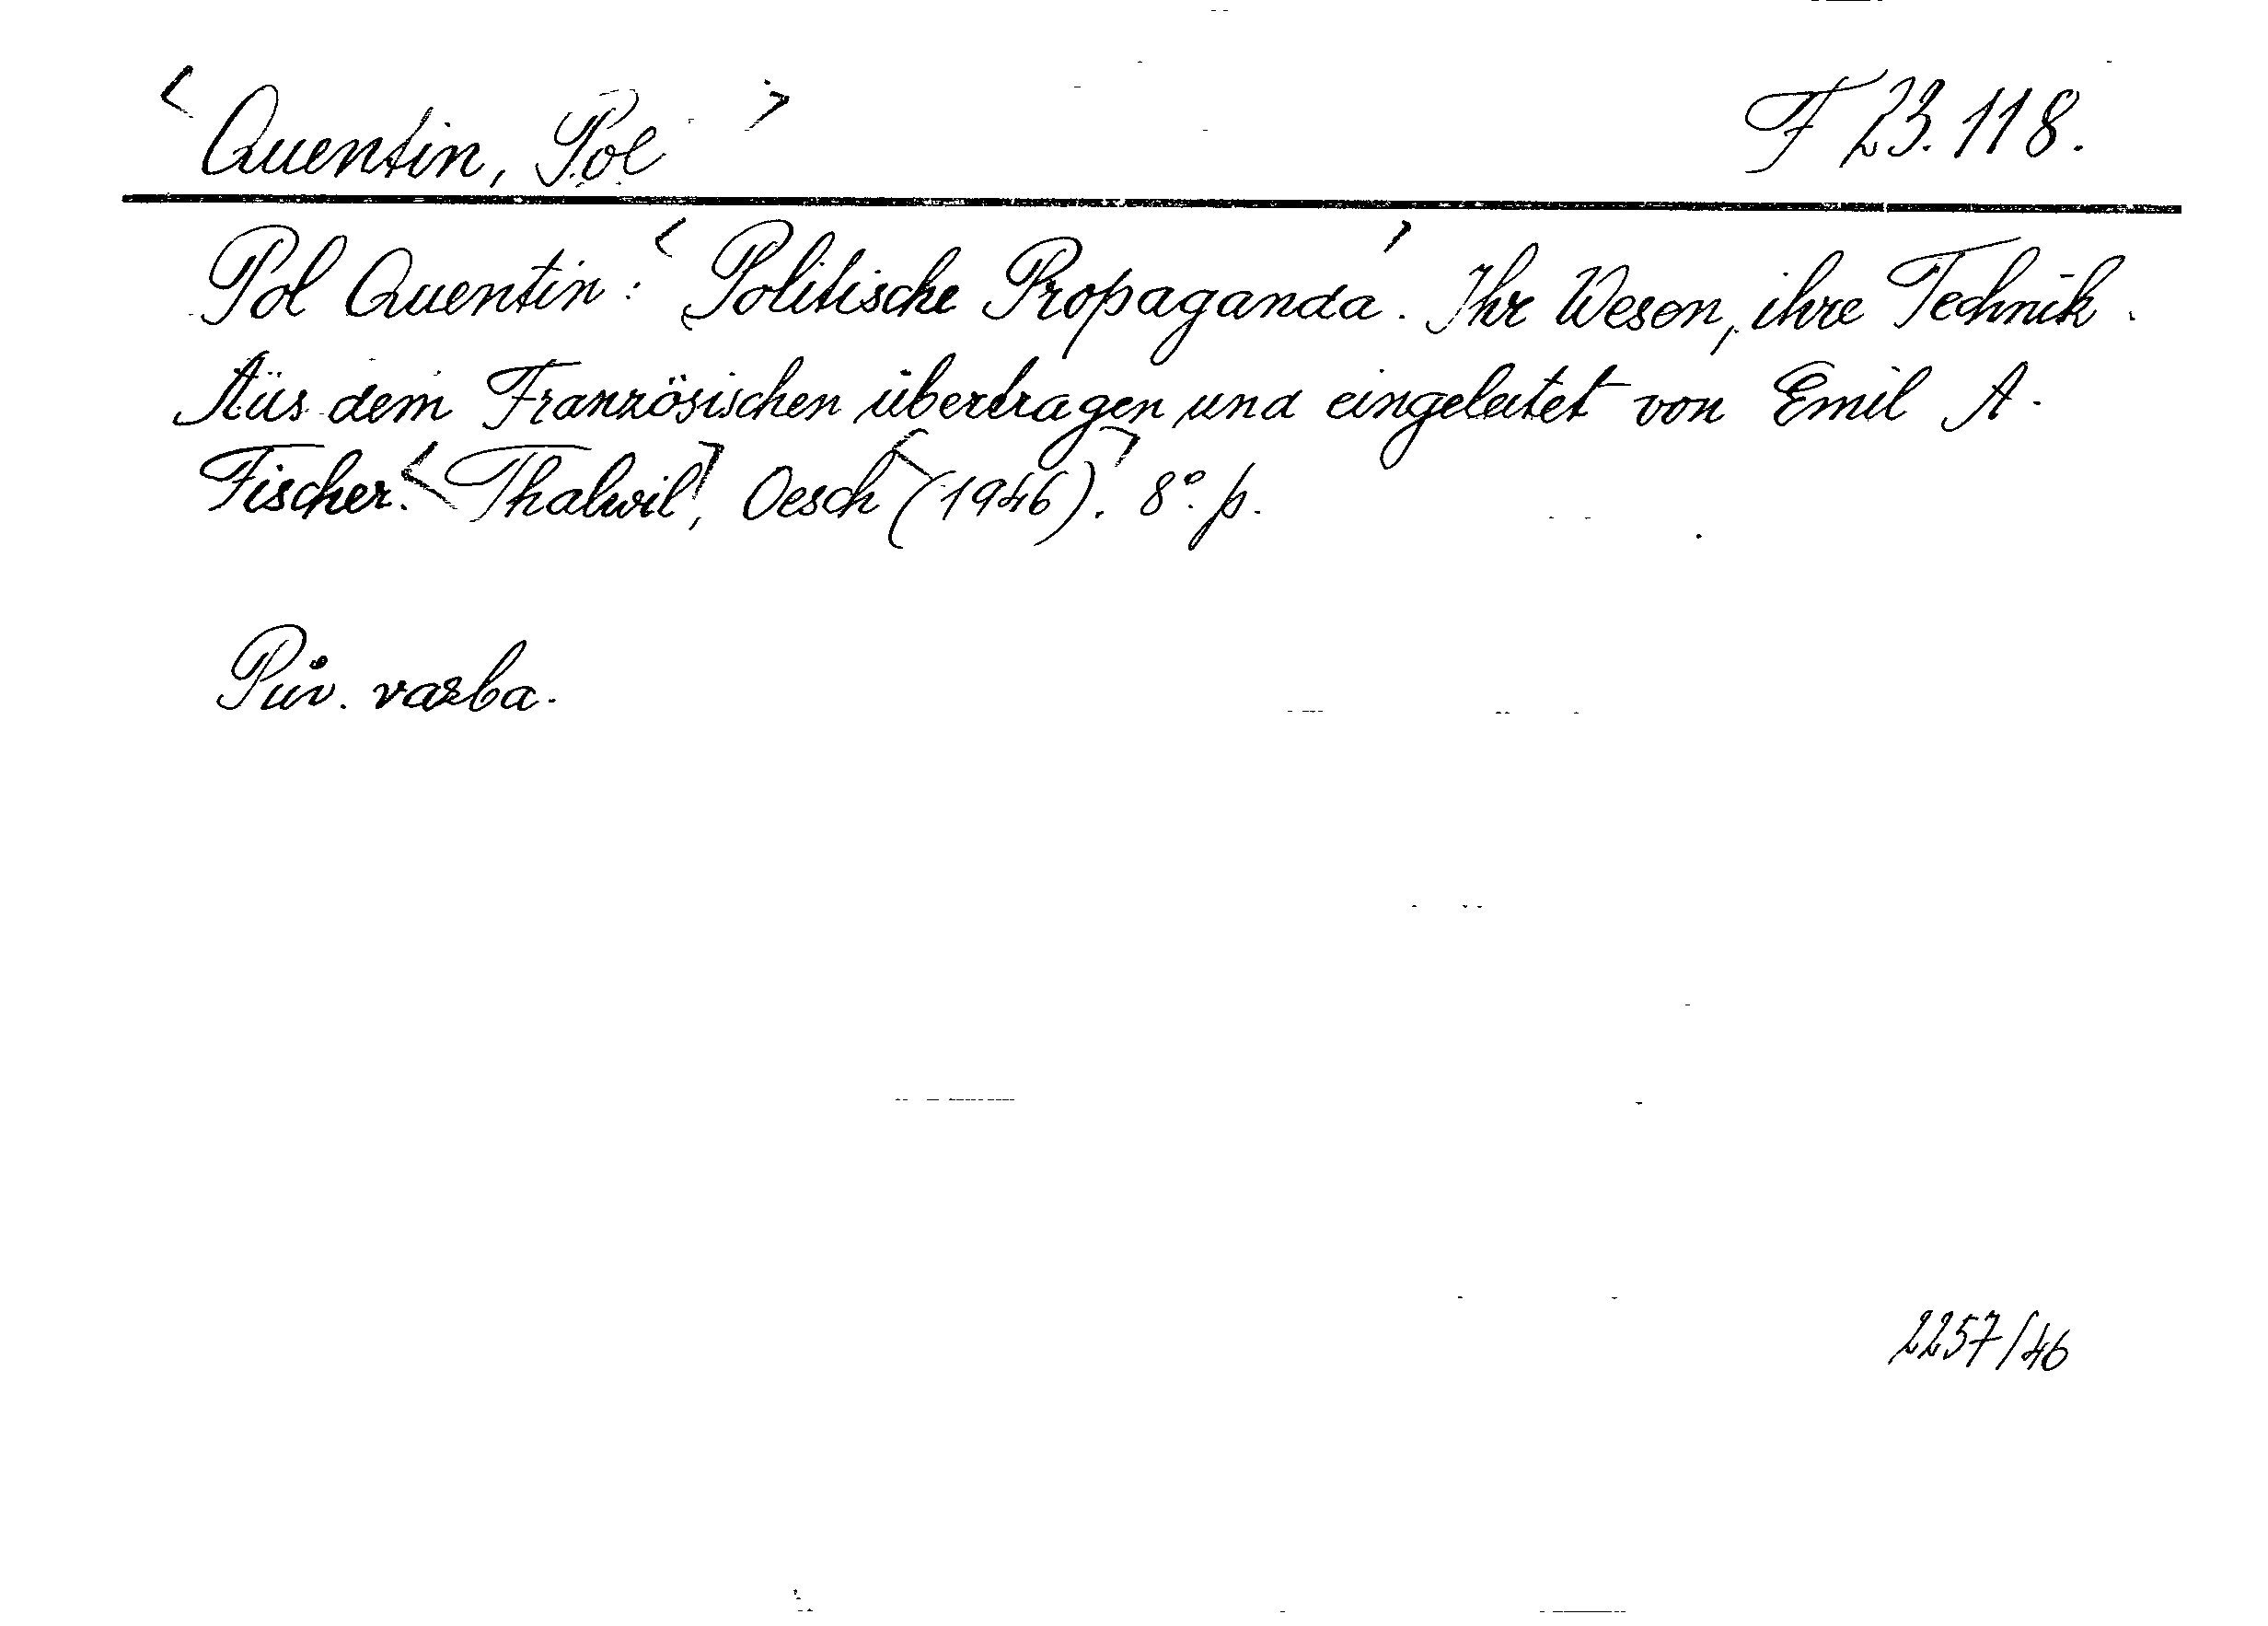 <Quentin, Pol> F 23.118.
Pol Quentin: <Politische Propaganda>. Ihr Wesen, ihre Technik.
Aus dem Französischen übertragen und eingeleitet von Emil A.
Fischer. <Thalwil>, Oesch <(1946).> 8°. p.
Pův. vazba.
2257/46